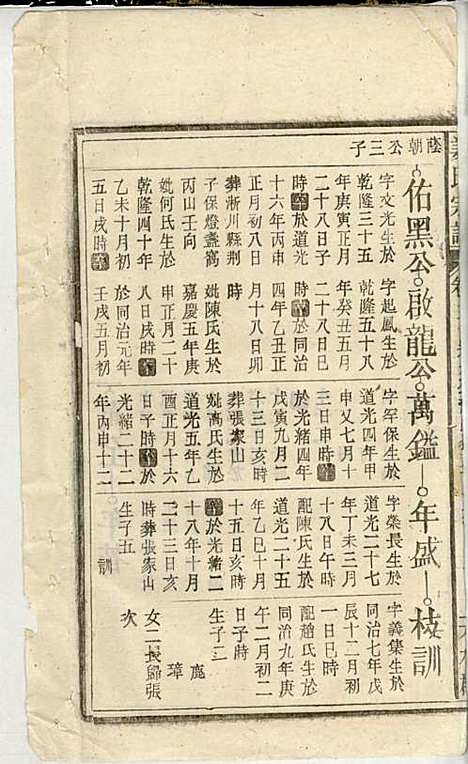 蔭朝公三子
佑黑公 啟龍公 萬鑑 年盛 枝訓
字文光生於
乾隆三十五
年庚寅正月
二十八日子
時卒於道光
十六年丙申
正月初八日
葬淅川縣荆
子保燈盞窩
丙山壬向
妣何氏生於
乾隆四十年
乙未十月初
五日戌時卒
字起鳳生於
乾隆五十八
年癸丑五月
二十八日巳
時卒於同治
四年乙丑正
月十八日卯
時
妣陳氏生於
嘉慶五年庚
申正月二十
八日戌時卒
於同治元年
壬戌五月初
字罕保生於
道光四年甲
申又七月十
三日申時卒
於光緒四年
戊寅九月二
十三日亥時
葬張家山
妣高氏生於
道光五年乙
酉正月十六
日子時卒於
光緒二十二
年丙申十二
字榮長生於
道光二十七
年丁未三月
十八日午時
配陳氏生於
道光二十五
年乙巳十月
十五日亥時
卒於光緒二
十八年十月
二十三日亥
時葬張家山
生子五
訓
字義集生於
同治七年戊
辰十二月初
一日巳時
配趙氏生於
同治九年庚
午二月初二
日子時
生子三
鹿
璋
女二長歸張
次